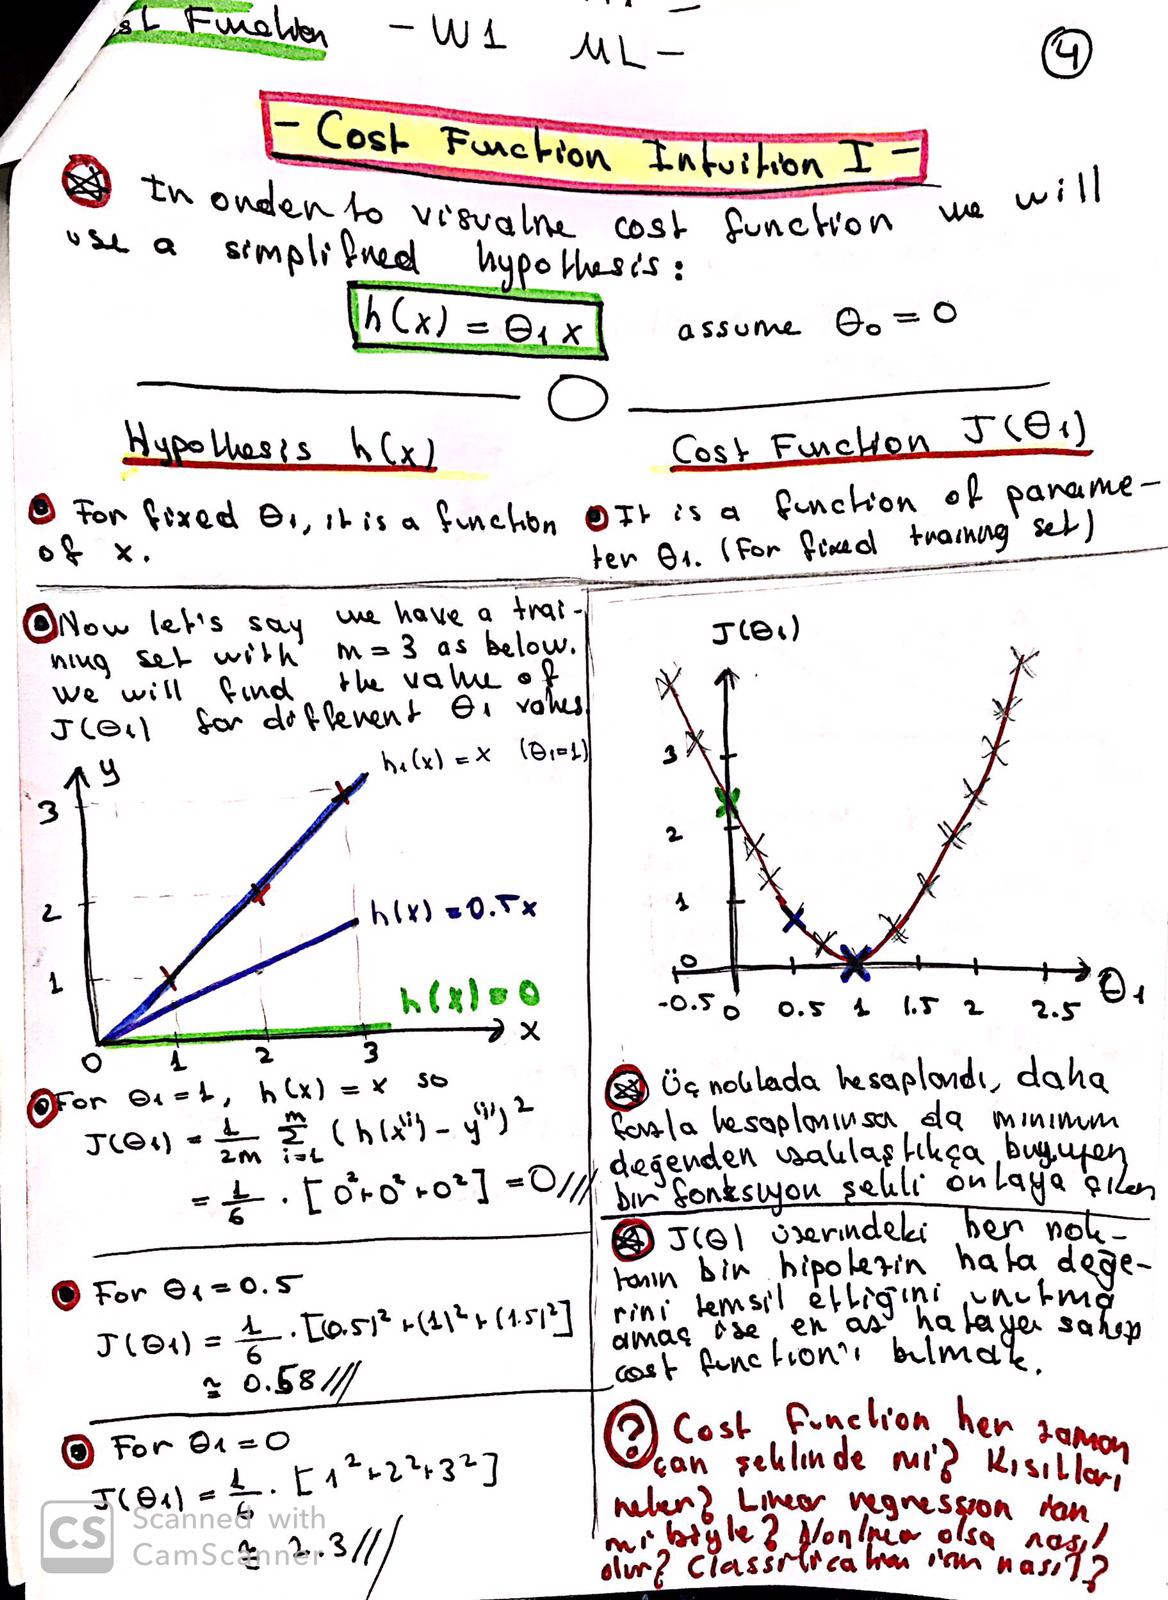 st Function - W1 ML -
4
- Cost Function Intuition I -
In order to visualize cost function we will
use a simplified hypothesis:
h(x) = θ₁x assume θ₀ = 0
Hypothesis h(x)
For fixed θ₁, it is a function
of x.
Cost Function J(θ₁)
It is a function of parame-
ter θ₁. (For fixed training set)
Now let's say we have a trai-
ning set with m = 3 as below.
We will find the value of
J(θ₁) for different θ₁ values.
y
h₁(x) = x (θ₁=1)
3
2
1
h(x) = 0.5x
h(x) = 0
x
0 1 2 3
For θ₁ = 1, h(x) = x so
J(θ₁) = 1/2m Σ_{i=1}^{m} (h(x⁽ⁱ⁾) - y⁽ⁱ⁾)²
= 1/6 . [0² + 0² + 0²] = 0///
For θ₁ = 0.5
J(θ₁) = 1/6 . [(0.5)² + (1)² + (1.5)²]
≅ 0.58///
For θ₁ = 0
J(θ₁) = 1/6 . [1² + 2² + 3²]
≅ 2.3///
J(θ₁)
3
2
1
0
-0.5 0 0.5 1 1.5 2 2.5
θ₁
Üç noktada hesaplandı, daha
fazla hesaplanırsa da minimum
değerden uzaklaştıkça büyüyen
bir fonksiyon şekli ortaya çıkar
J(θ) üzerindeki her nok-
tanın bir hipotezin hata değe-
rini temsil ettiğini unutma
amaç ise en az hataya sahip
cost function'ı bulmak.
? Cost function her zaman
çan şeklinde mi? Kısıtları
neler? Linear regression için
mi böyle? Nonlinear olsa nasıl
olur? Classification için nasıl?
CS Scanned with
CamScanner